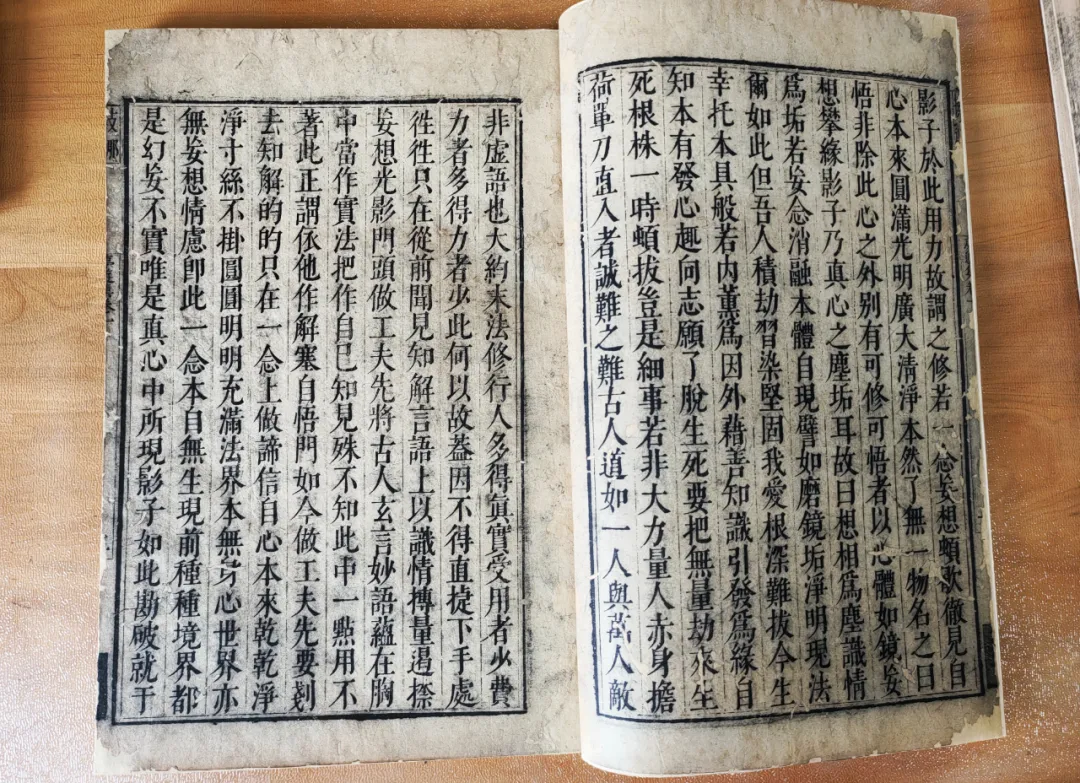 影子於此用力故謂之修若一念妄想頓歇徹見自
心本來圓滿光明廣大清淨本然了無一物名之曰
悟非除此心之外別有可修可悟者以心體如鏡妄
想攀緣影子乃真心之塵垢耳故曰想相爲塵識情
爲垢若妄念消融本體自現譬如磨鏡垢淨明現法
爾如此但吾人積劫習染堅固我愛根深難拔今生
幸托本具般若內薰爲因外藉善知識引發爲緣自
知本有發心趣向志願了脫生死要把無量劫來生
死根株一時頓拔豈是細事若非大力量人赤身擔
荷單刀直入者誠難之難古人道如一人與萬人敵
非虛語也大約末法修行人多得眞實受用者少費
力者多得力者少此何以故葢因不得直捷下手處
徃徃只在從前聞見知解言語上以識情摶量遏捺
妄想光影門頭做工夫先將古人玄言妙語蘊在胸
中當作實法把作自己知見殊不知此中一點用不
著此正謂依他作解塞自悟門如今做工夫先要剗
去知解的的只在一念上做諦信自心本來乾乾淨
淨寸絲不掛圓圓明明充滿法界本無身心世界亦
無妄想情慮卽此一念本自無生現前種種境界都
是幻妄不實唯是真心中所現影子如此勘破就于